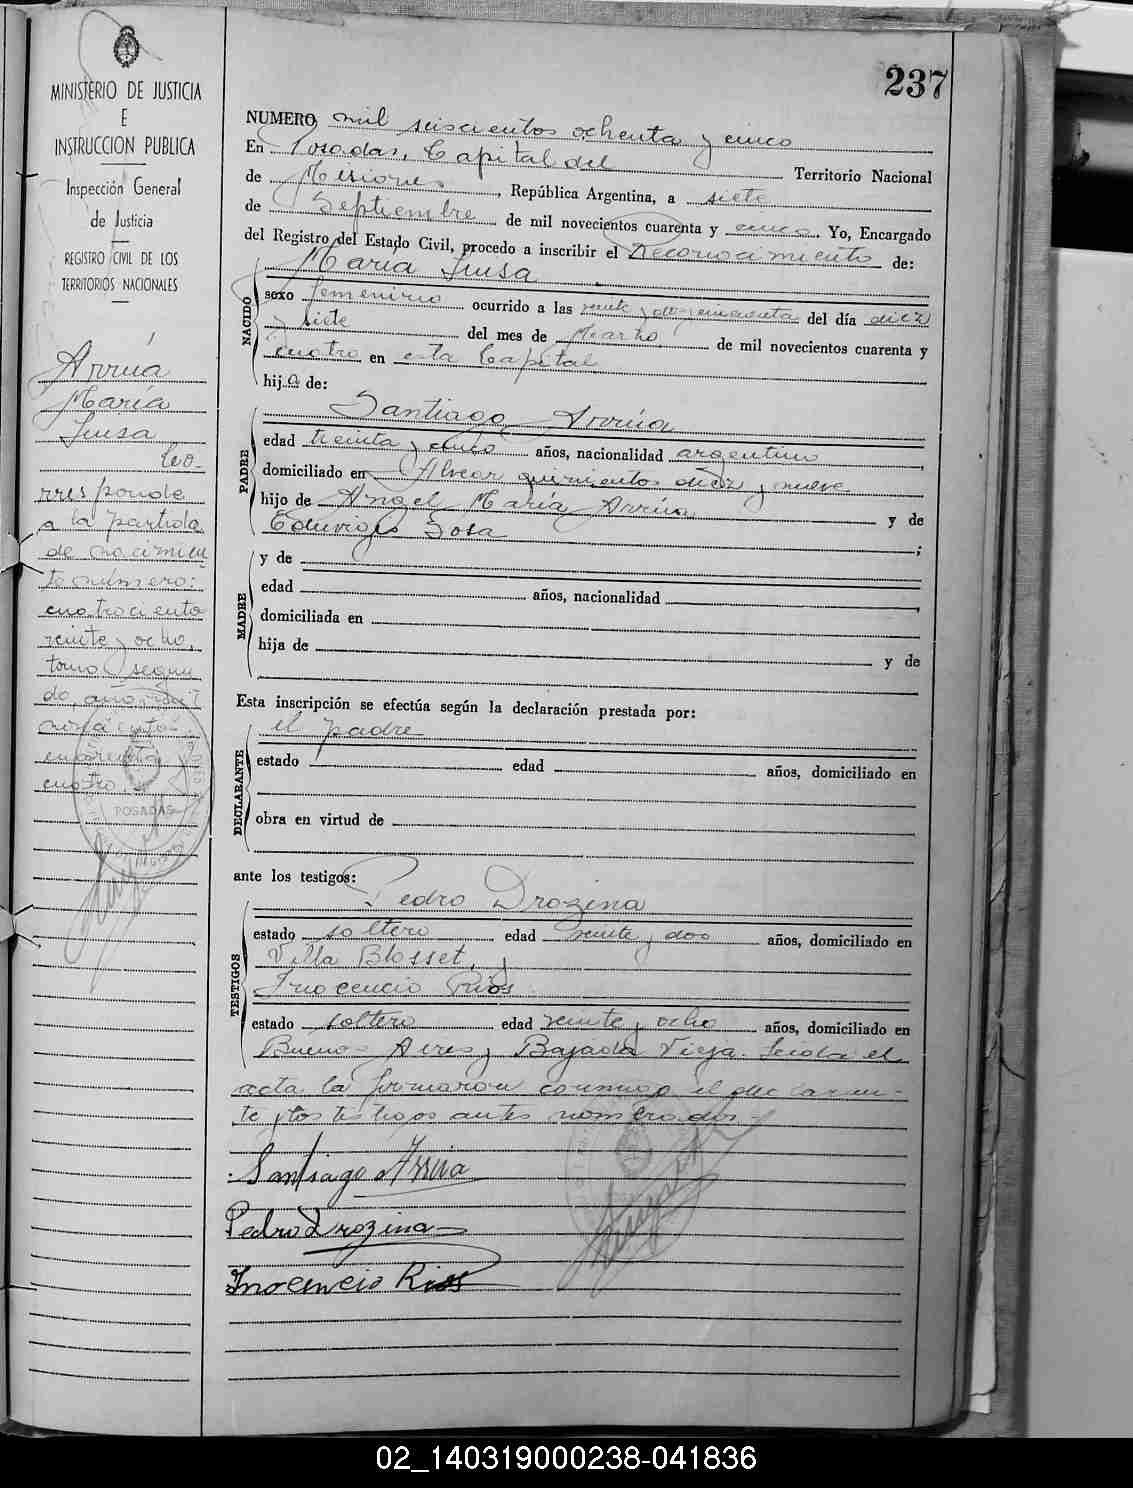 237
MINISTERIO DE JUSTICIA
E
INSTRUCCION PUBLICA
Inspección General
de Justicia
REGISTRO CIVIL DE LOS
TERRITORIOS NACIONALES
Arrua
María
Luisa
Co-
rresponde
a la partida
de nacimien
to número:
cuatrocientos
veinte y ocho,
tomo segun
do, año mil
novecientos
cuarenta y
cuatro.
POSADAS
NUMERO mil seiscientos ochenta y cinco
En Posadas, Capital del Territorio Nacional
de Misiones, República Argentina, a siete
de Septiembre de mil novecientos cuarenta y cinco. Yo, Encargado
del Registro del Estado Civil, procedo a inscribir el Reconocimiento de:
María Luisa
NACIDO
sexo femenino ocurrido a las veinte y del día diez
y siete del mes de Marzo de mil novecientos cuarenta y
cuatro en esta Capital
hija de:
Santiago Arrúa
PADRE
edad treinta y cinco años, nacionalidad argentino,
domiciliado en Alvear quinientos diez y nueve
hijo de Angel María Arrúa y de
Eduvigis Sosa;
MADRE
y de
edad años, nacionalidad,
domiciliada en
hija de y de
Esta inscripción se efectúa según la declaración prestada por:
el padre
DECLARANTE
estado edad años, domiciliado en
obra en virtud de
ante los testigos:
Pedro Drozina
TESTIGOS
estado soltero edad veinte y dos años, domiciliado en
Villa Blosset, y
Inocencio Rios
estado soltero edad veinte y ocho años, domiciliado en
Buenos Aires y Bajada Vieja. Leida el
acta la firmaron conmigo el declaran-
te y los testigos antes nombrados.-
Santiago Arrúa
Pedro Drozina
Inocencio Rios
02_140319000238-041836